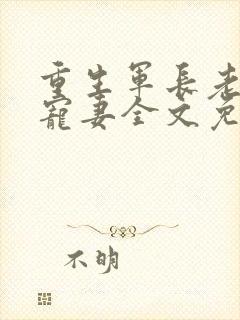 重生军长老
宠妻全文免
不明